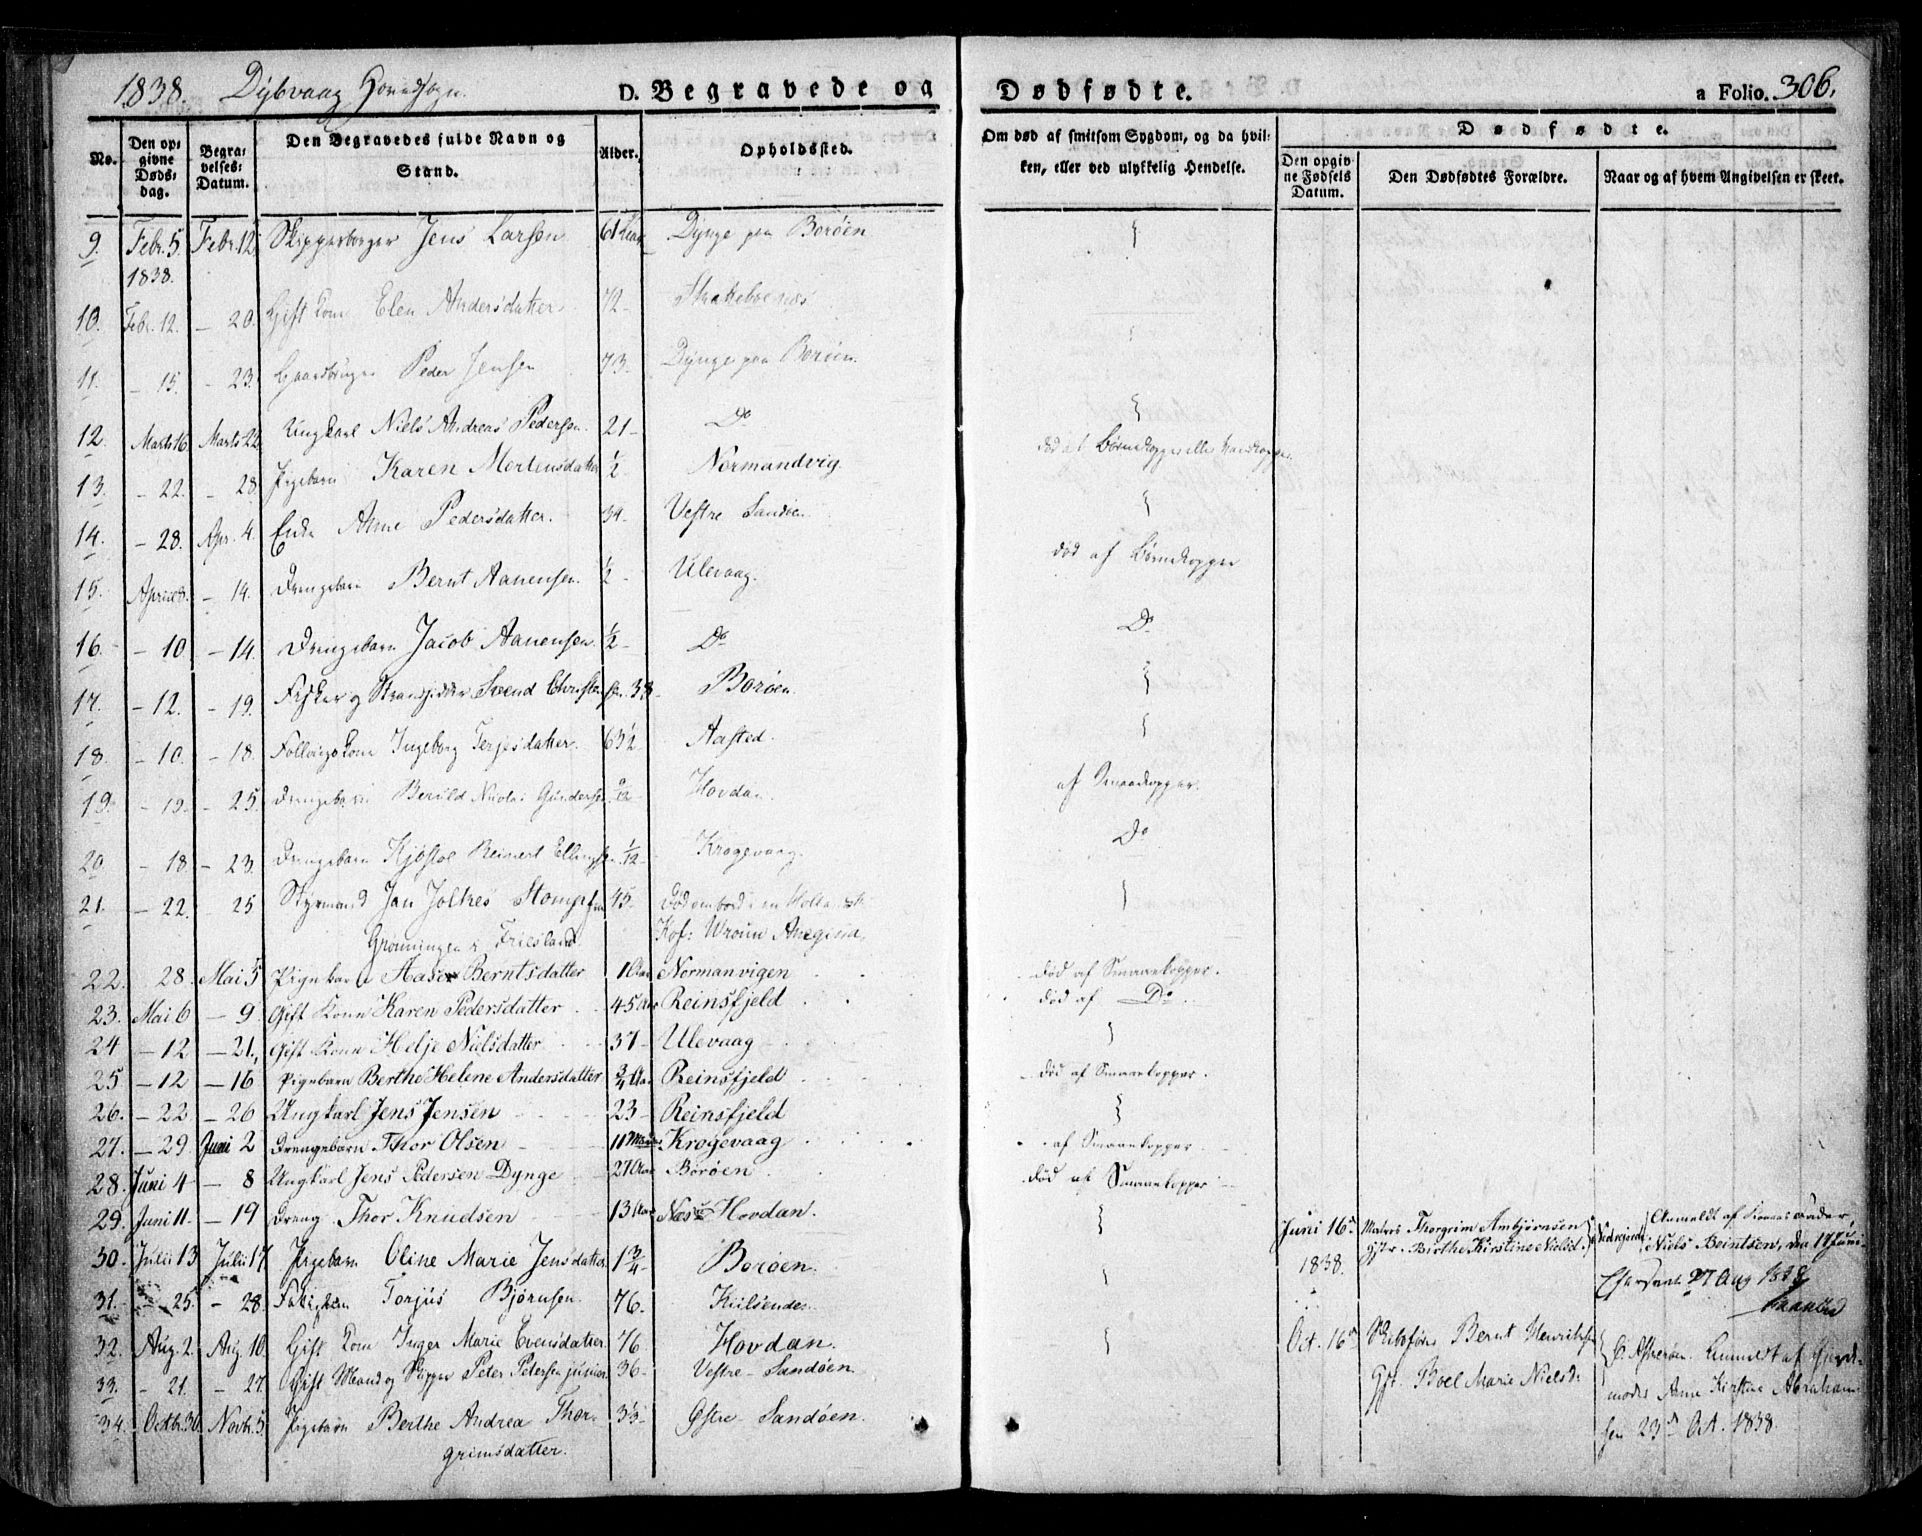 1838. Dybvaag Hovedsogn.
D. Begravede og Dødfødte.
a Folio. 306.
No. | Den opgivne Dødsdag. | Begravelses-Datum. | Den Begravedes fulde Navn og Stand. | Alder. | Opholdssted. | Om død af smitsom Sygdom, og da hvilken, eller ved ulykkelig Hendelse.
Dødfødte.
Den opgivne Fødsels Datum. | Den Dødfødtes Forældre. | Naar og af hvem Angivelsen er skeet.
9. Febr. 5. 1838. Febr. 12. Skipperborger Jens Larsen 61 Dynge paa Borøen
10. Febr. 12. - 20. Gift Kone Elen Andersdatter 72-
11. - 15. - 23. Gaardbruger Peder Jensen 73. Dynge paa Borøen
12. Marts 16. Marts 22. Ungkarl Niels Andreas Pedersen 21- Do
13. - 22. - 28. Pigebarn Karen Mortensdatter ½ Normandvig. død af Børnekopper eller
14. - 28. Apr. 4. Enke Anne Pedersdatter. 34. Vestre Sandøen
15. April 8. - 14. Drengebarn Bernt Aanensen. ½ - Ulevaag. død af Børnekopper
16. - 10 - 14. Drengebarn Jacob Aanensen ½ - Do Do
17. - 12. - 19. Fisker og Strandsidder Svend Christensen. 38- Borøen.
18. - 10. - 18. Kone Ingeborg Terjesdatter. 63½ Aasted.
19. - 19. - 25. Drengebarn Beruld Nicolai Gundersen Hovdan. af Smaakopper.
20 - 18. - 23. Drengebarn Kjøstol Reinert Ellingsen. 1/12- Krogevaag. Do
21. - 22. - 25 Styrmand Jan Jolkes 45. Død ombord i en
Grønningen i Friesland. Kof:
22. 28. Mai 5 Pigebarn Aase Berntsdatter 1 Aar Normanvigen død af Smaaekopper.
23. Mai 6 - 9. Gift Kone Karen Pedersdatter 45 Aar Reinsfjeld død af Do
24 - 12 - 21. Gift Kone Helje Nielsdatter 37- Ulevaag
25 - 12 - 16 Pigebarn Berthe Helene Andersdatter ¾ Aar Reinsfjeld død af Smaaekopper.
26. - 22 - 26 Ungkarl Jens Jensen 23- Reinsfjeld
27. - 29 Juni 2 Drengebarn Thor Olsen 11 Krogevaag af Smaaekopper
28. Juni 4 - 8 Ungkarl Jens Pedersen Dynge 27 Aar Borøen død af Smaaekopper
29. Juni 11. - 19 Dreng Thor Knudsen 13 Aar Næs Hovdan.
30. Julii 13 Julii 17. Pigebarn Oline Marie Jensdatter 1¾ Borøen.
31. - 25. - 28. Torjus Bjørnsen. 76. Kiilsenden
32. Aug. 2. Aug. 10. Gift Kone Inger Marie Evensdatter 76. Hovdan.
33. - 21. - 27. Gift Mand og Skipper Peter Petersen junior 36- Vestre Sandøen.
34. Octbr. 30. Novbr. 5. Pigebarn Berthe Andrea Thorgrimsdatter. Østre Sandøen.
Juni 16de 1838. Matros Thorgrim Ambjørnsen
Birthe Kirstine Nielsd.
Anmeldt af Konens Fader, Niels Beintsen, den 17 Juni
27 Aug 1838
Oct. 16de Bernt Henriksen
Gst. Boel Marie Nielsd.
Anmeldt af Gjordemoder Anne Kirstine Abrahamsen 23de Oct. 1838.